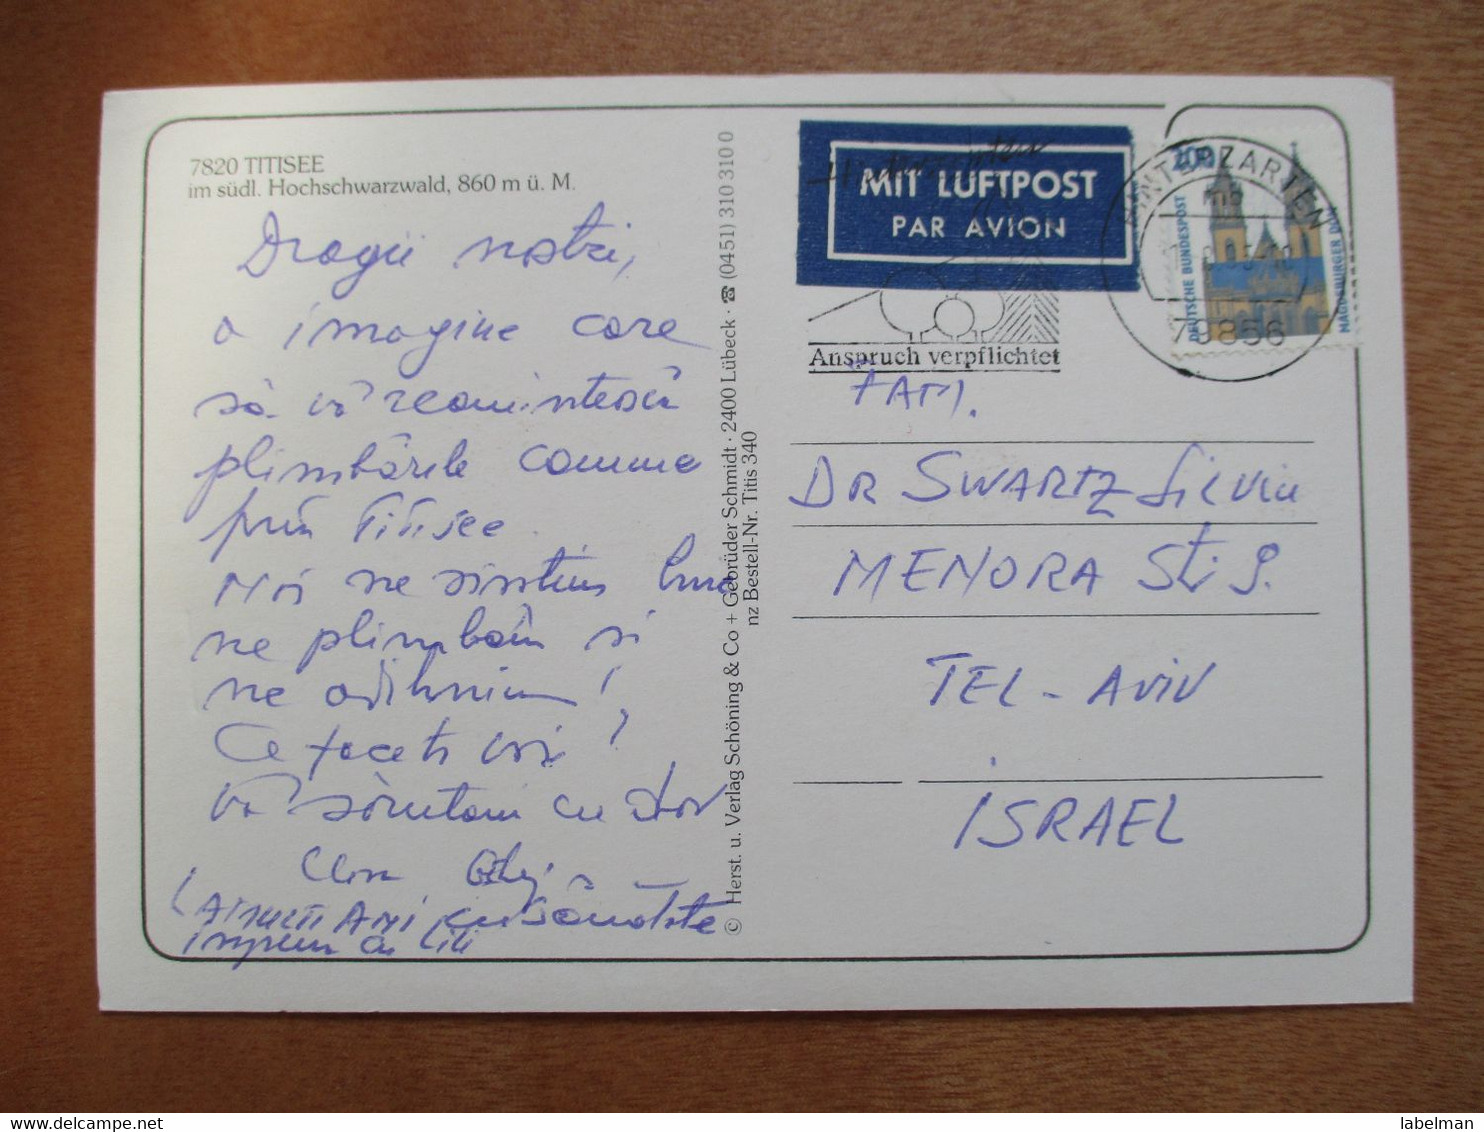 7820 TITISEE
im südl. Hochschwarzwald, 860 m ü. M.
Dragii noștri,
o imagine care
să vă reamintească
plimbările comune
prin Titisee.
Noi ne simțim bine
ne plimbăm și
ne odihnim!
Ce faceți voi?
Vă sărutăm cu dor
cu sănătate
împreun cu Lili
© Herst. u. Verlag Schöning & Co + Gebrüder Schmidt · 2400 Lübeck · ☎ (0451) 310 310 0
nz Bestell-Nr. Titis 340
MIT LUFTPOST
PAR AVION
Anspruch verpflichtet
HINTERZARTEN
79856
DEUTSCHE BUNDESPOST
MAGDEBURGER DOM
FAM.
DR SWARTZ Silviu
MENORA Str 9.
TEL-AVIV
ISRAEL
delcampe.net
labelman